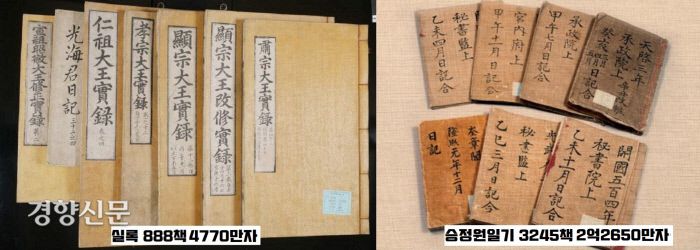 宣祖昭敬大王修正實錄
光海君日記
仁祖大王實錄
孝宗大王實錄
顯宗大王實錄
顯宗大王改修實錄
肅宗大王實錄
경향신문
실록 888책 4770만자
秘書監上
乙未四月日記合
宮內府上
甲午十一月日記合
承政院上
甲午七月日記合
天啓三年
承政院上
癸亥
日記
奎章閣
隆熙元年十二月
日記
秘書監上
乙巳三月日記合
開國五百四年
秘書院上
乙未十一月日記合
승정원일기 3245책 2억2650만자